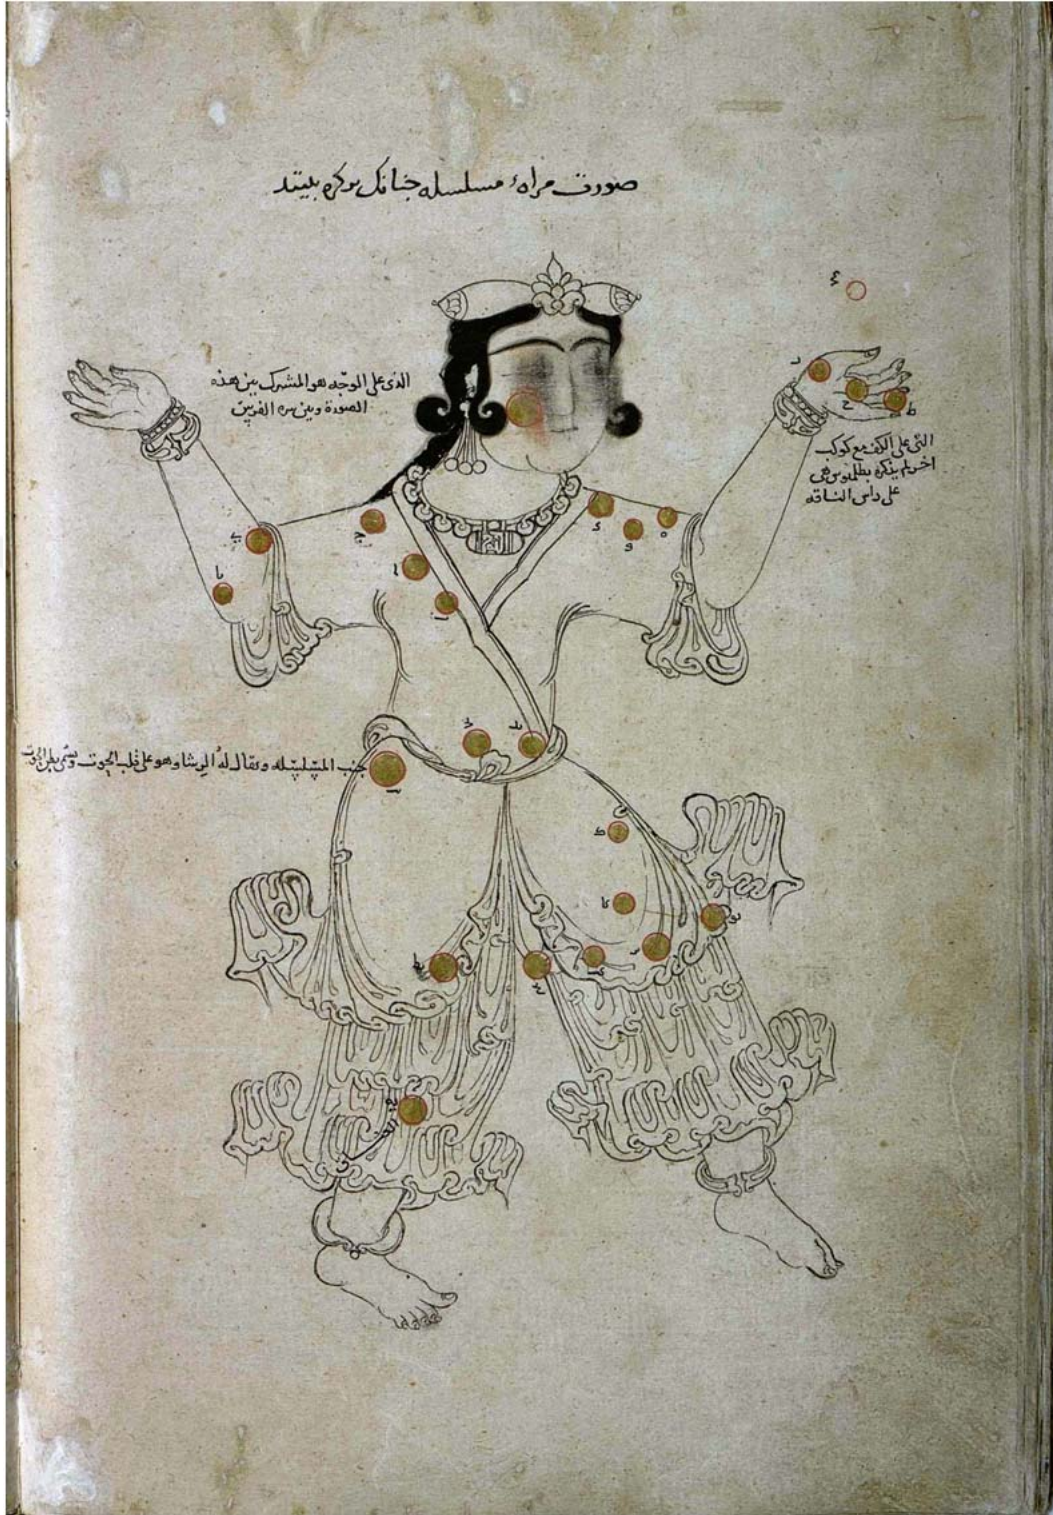 صورت مراهٔ مسلسله چنانك بر كره بينند
الذى على الوجه هو المشترك بين هذه
الصورة وبين سره الفرس
التى على الكف مع كوكب
اخر لم يذكره بطلميوس هى
على راس الناقه
جنب المسلسله ويقال له الرشا وهو على قلب الحوت ويسمى بطن الحوت